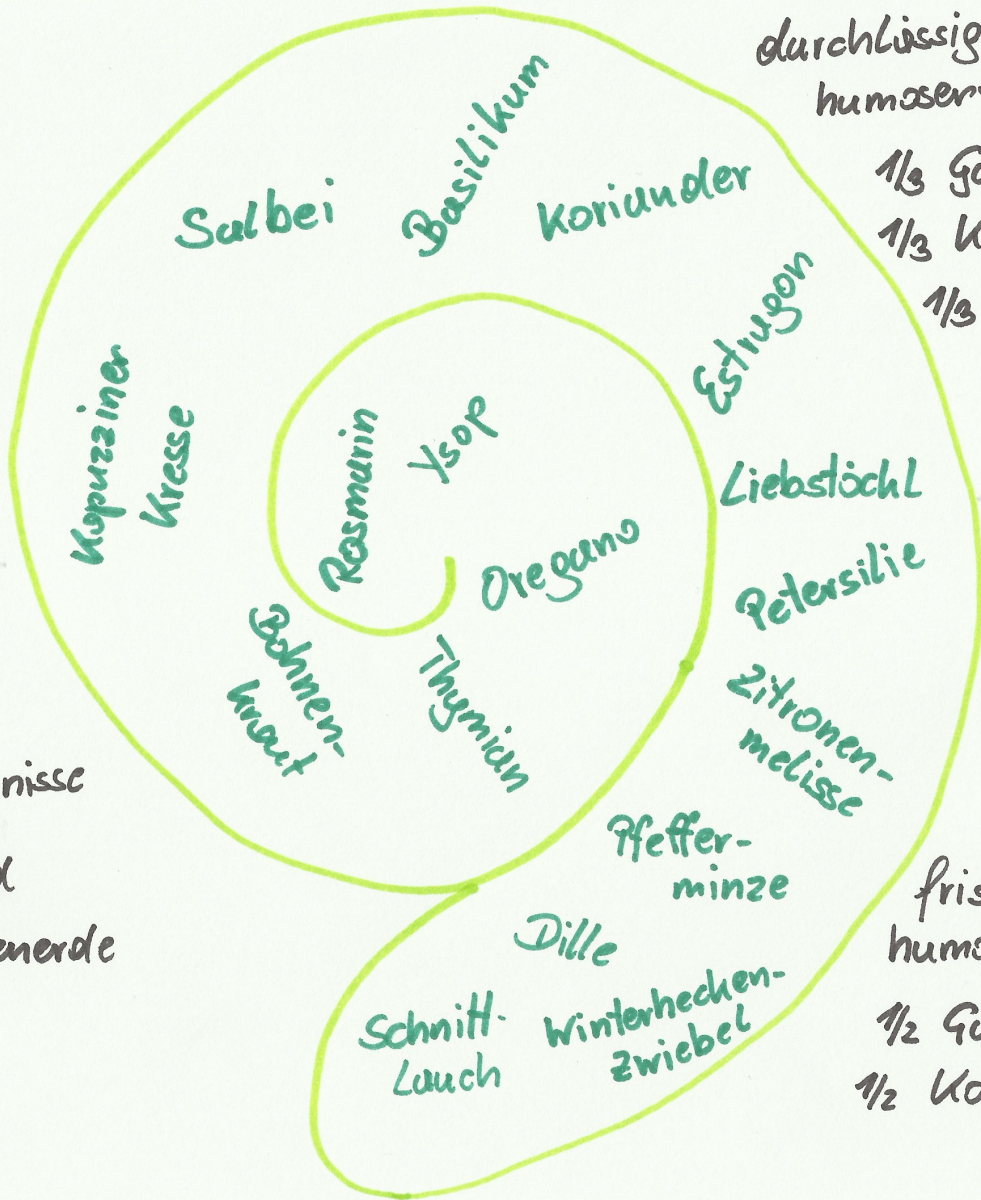 durchlässig
humoser
1/3 Ga
1/3 K
1/3
Salbei
Basilikum
Koriander
Estragon
Kapuzziner
Kresse
Rosmarin
Ysop
Oregano
Liebstöckl
Petersilie
Zitronen-
melisse
Bohnen-
kraut
Thymian
nisse
d
enerde
Pfeffer-
minze
Dille
Schnitt-
Lauch
Winterhecken-
zwiebel
fris
humo
1/2 Ga
1/2 Ko